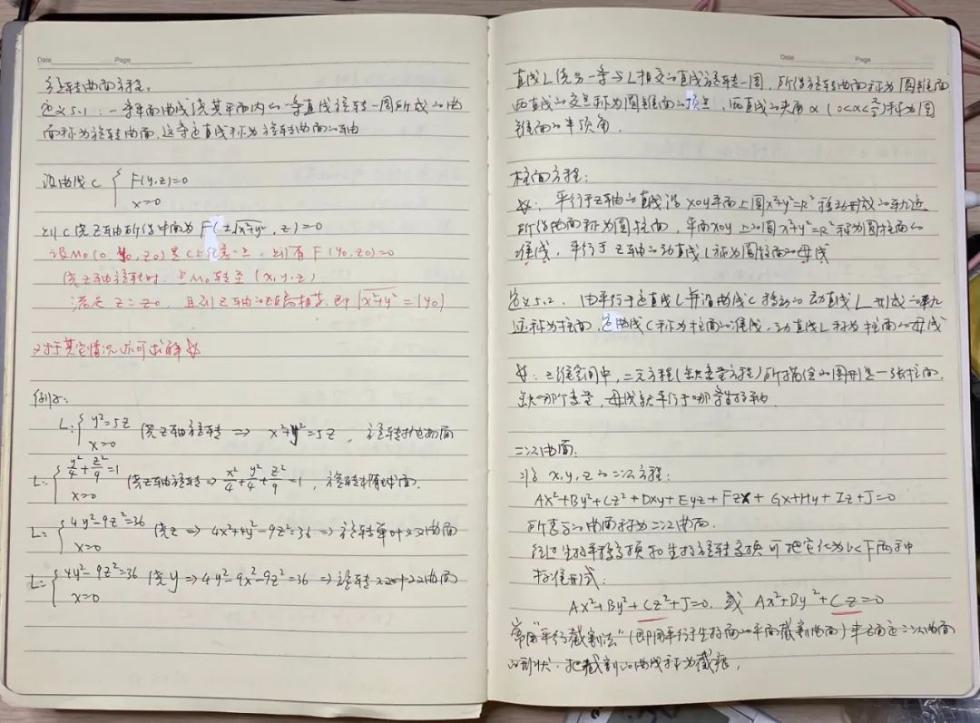 Date Page
旋转曲面方程.
定义5.1:一条平面曲线绕其平面内的一条直线旋转一周所成的曲
面称为旋转曲面,这条定直线称为旋转曲面的轴
设曲线C { F(y,z)=0
x=0
则C绕Z轴所得曲面为 F(±√x²+y², z)=0
设M₀(0, y₀, z₀)是C上任意一点,则有F(y₀,z₀)=0
绕Z轴旋转时,点M₀转至(x,y,z)
满足 z=z₀,且到Z轴的距离相等,即√x²+y²=|y₀|
对于其它情况亦可求解
例:
L:{ y²=5z 绕Z轴旋转 ⇒ x²+y²=5z,旋转抛物面
x=0
L:{ y²/4+z²/9=1 绕Z轴旋转 ⇒ x²/4+y²/4+z²/9=1,旋转椭球面.
x=0
L:{ 4y²-9z²=36 绕z ⇒ 4x²+4y²-9z²=36 ⇒ 旋转单叶双曲面
x=0
L:{ 4y²-9z²=36 绕y ⇒ 4y²-9x²-9z²=36 ⇒ 旋转双叶双曲面
x=0
Date Page
直线L绕另一条与L相交的直线旋转一周,所得旋转曲面称为圆锥面
两直线的交点称为圆锥面的顶点,两直线的夹角α(0<α<π/2)称为圆
锥面的半顶角.
柱面方程:
平行于Z轴的直线沿xoy平面上圆x²+y²=R²移动形成的轨迹
所得曲面称为圆柱面,平面xoy上的圆x²+y²=R²称为圆柱面的
准线,平行于Z轴的动直线L称为圆柱面的母线
定义5.2.由平行于定直线L并沿曲线C移动的动直线L形成的轨
迹称为柱面,定曲线C称为柱面的准线,动直线L称为柱面的母线
三维空间中,二元方程(缺变量方程)所描绘的图形是一张柱面,
缺哪个变量,母线就平行于哪条坐标轴.
二次曲面.
x,y,z的二次方程:
Ax²+By²+Cz²+Dxy+Eyz+Fzx+Gx+Hy+Iz+J=0
所表示的曲面称为二次曲面.
经过坐标平移变换和坐标旋转变换可把它化为以下两种
标准形式:
Ax²+By²+Cz²+J=0. 或 Ax²+By²+Cz=0
常用"平行截割法"(即用平行于坐标面的平面截割曲面)来确定二次曲面
的形状.把截割的曲线称为截痕.